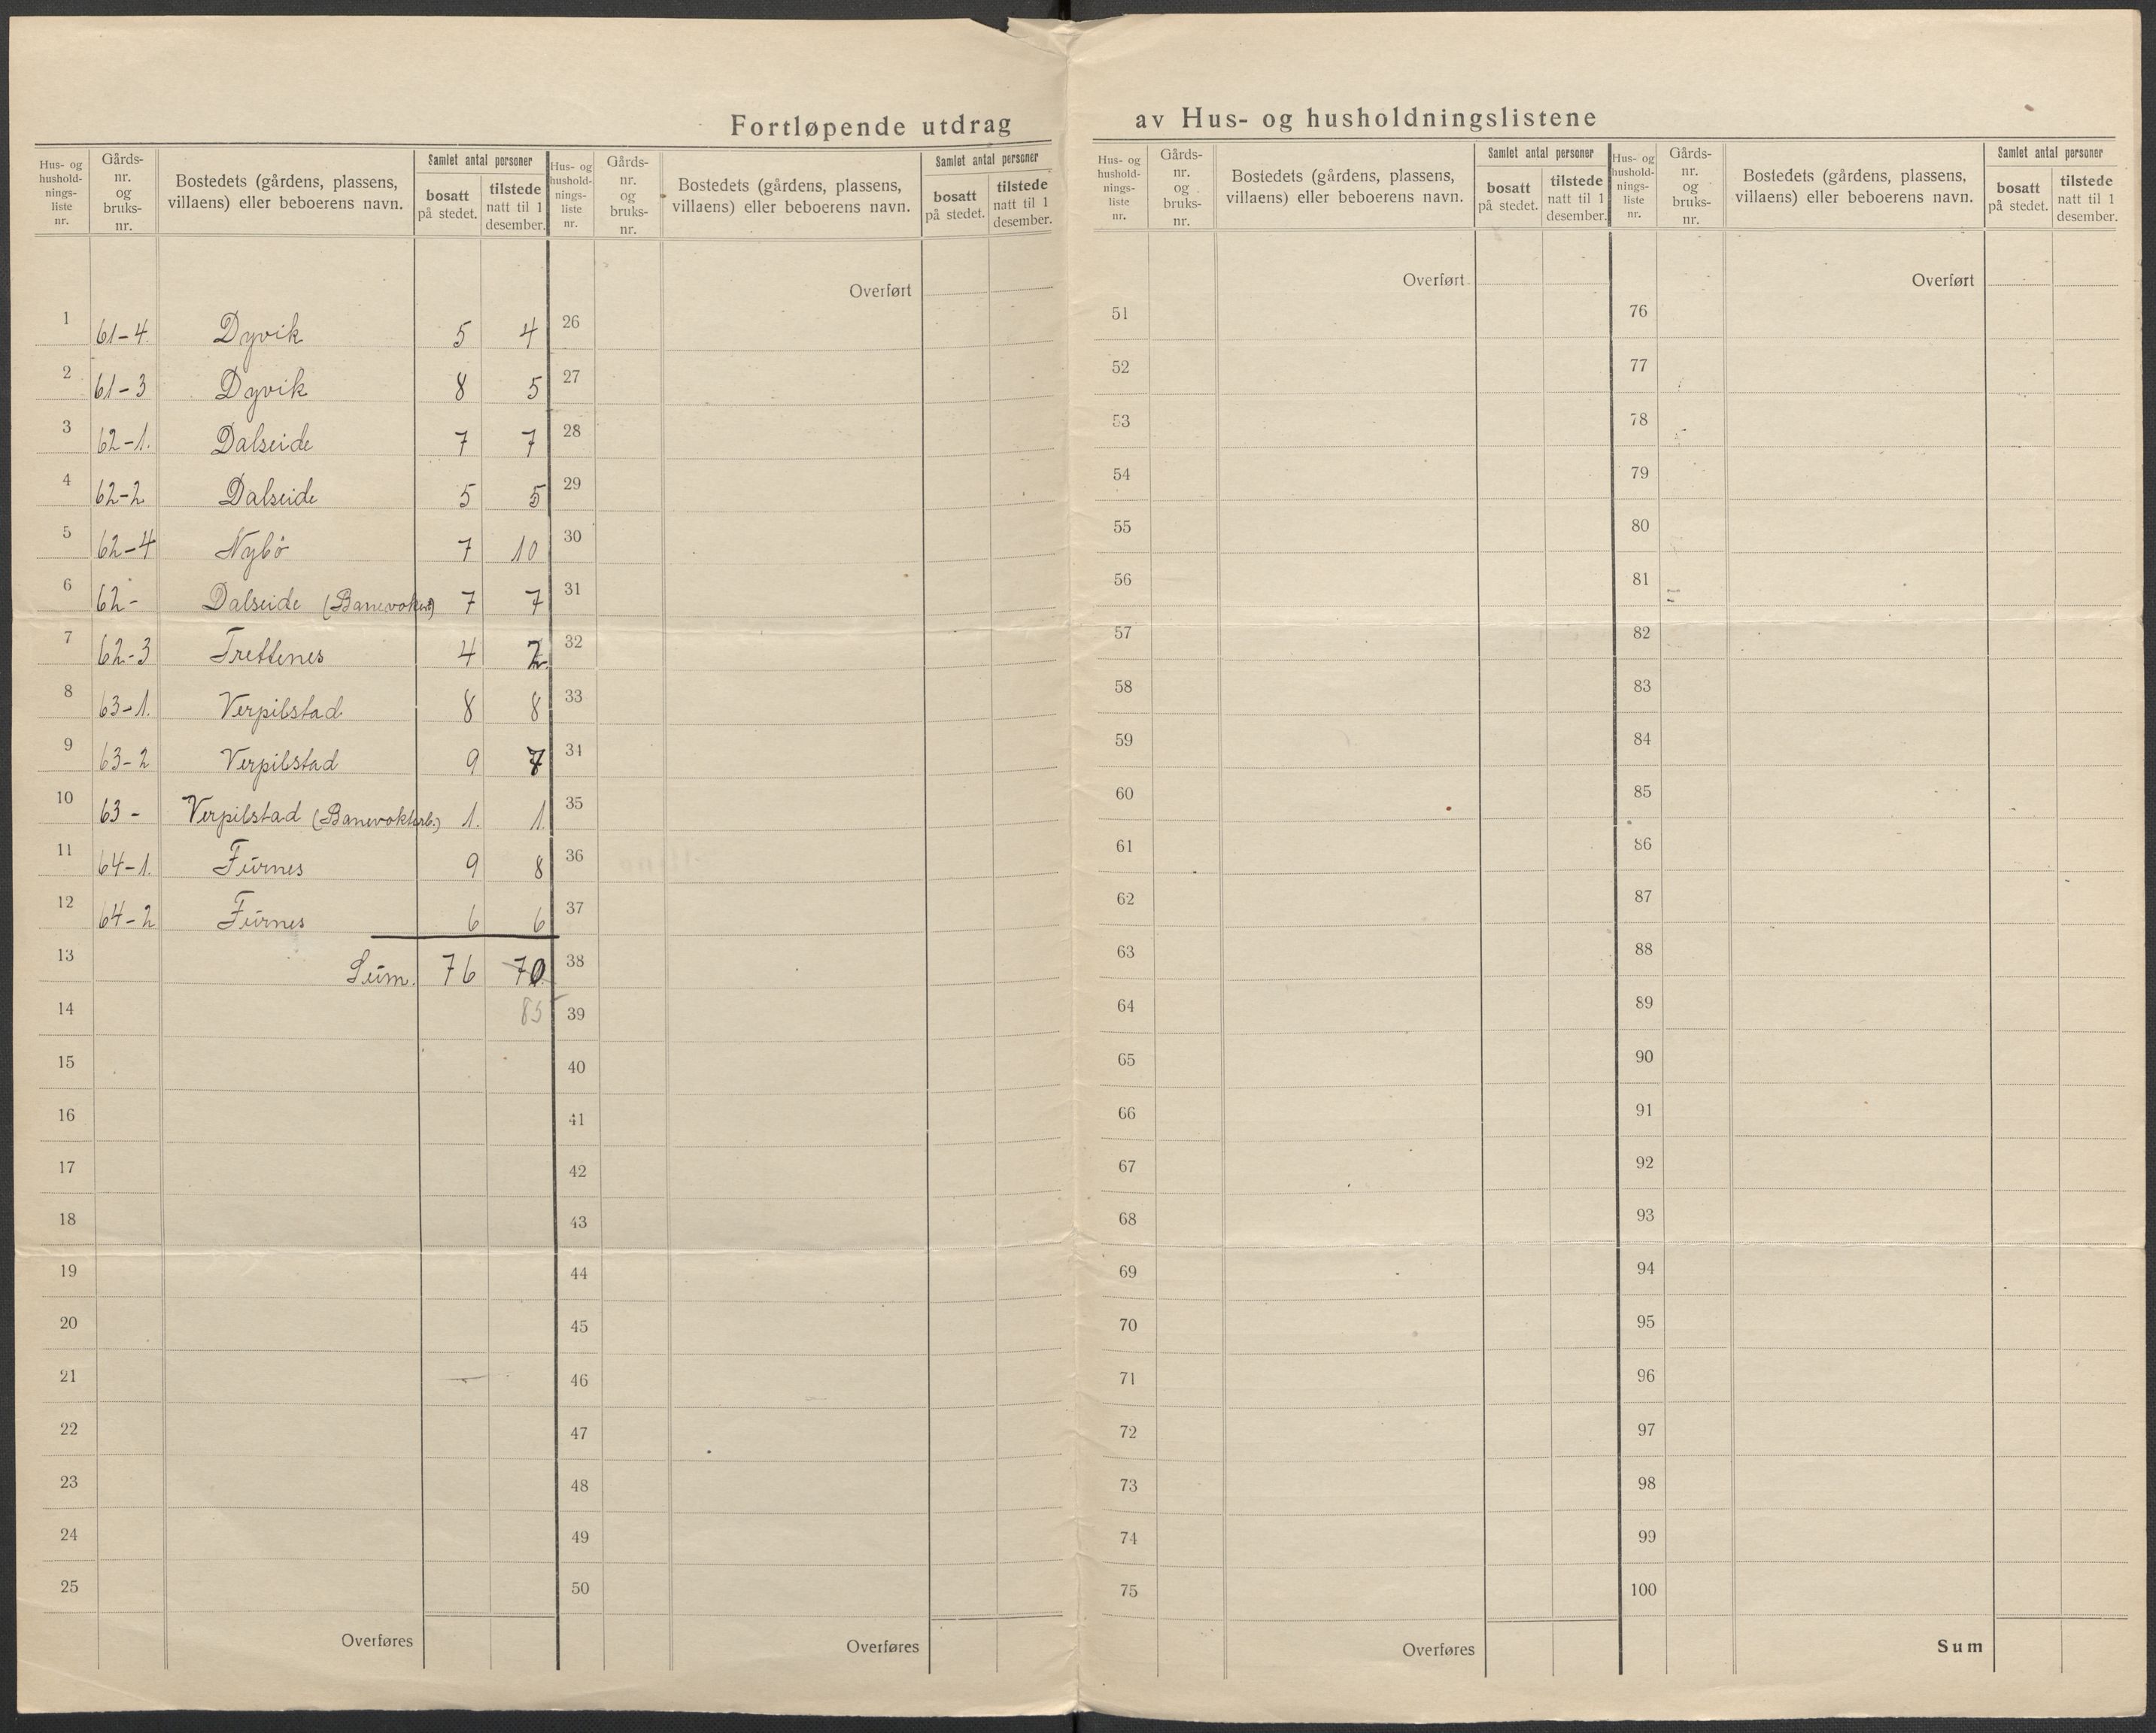 Fortløpende utdrag av Hus- og husholdningslistene
Hus- og hushold-nings-liste nr. | Gårds-nr. og bruks-nr. | Bostedets (gårdens, plassens, villaens) eller beboerens navn. | Samlet antal personer | bosatt på stedet. | tilstede natt til 1 desember.
Hus- og hushold-nings-liste nr. | Gårds-nr. og bruks-nr. | Bostedets (gårdens, plassens, villaens) eller beboerens navn. | Samlet antal personer | bosatt på stedet. | tilstede natt til 1 desember.
Hus- og hushold-nings-liste nr. | Gårds-nr. og bruks-nr. | Bostedets (gårdens, plassens, villaens) eller beboerens navn. | Samlet antal personer | bosatt på stedet. | tilstede natt til 1 desember.
Hus- og hushold-nings-liste nr. | Gårds-nr. og bruks-nr. | Bostedets (gårdens, plassens, villaens) eller beboerens navn. | Samlet antal personer | bosatt på stedet. | tilstede natt til 1 desember.
1 61-4. Dyvik 5 4
2 61-3 Dyvik 8 5
3 62-1. Dalseide 7 7
4 62-2 Dalseide 5 5
5 62-4 Nybö 7 10
6 62- Dalseide 7 7
7 62-3 Trettenes 4 2
8 63-1. Verpilstad 8 8
9 63-2 Verpilstad 9 7
10 63- Verpilstad (Banevokterb.) 1. 1.
11 64-1. Fürnes 9 8
12 64-2 Fürnes 6 6
13 Süm. 76 70
14 85
15
16
17
18
19
20
21
22
23
24
25
Overføres
Overført
26
27
28
29
30
31
32
33
34
35
36
37
38
39
40
41
42
43
44
45
46
47
48
49
50
Overføres
Overført
51
52
53
54
55
56
57
58
59
60
61
62
63
64
65
66
67
68
69
70
71
72
73
74
75
Overføres
Overført
76
77
78
79
80
81
82
83
84
85
86
87
88
89
90
91
92
93
94
95
96
97
98
99
100
Sum